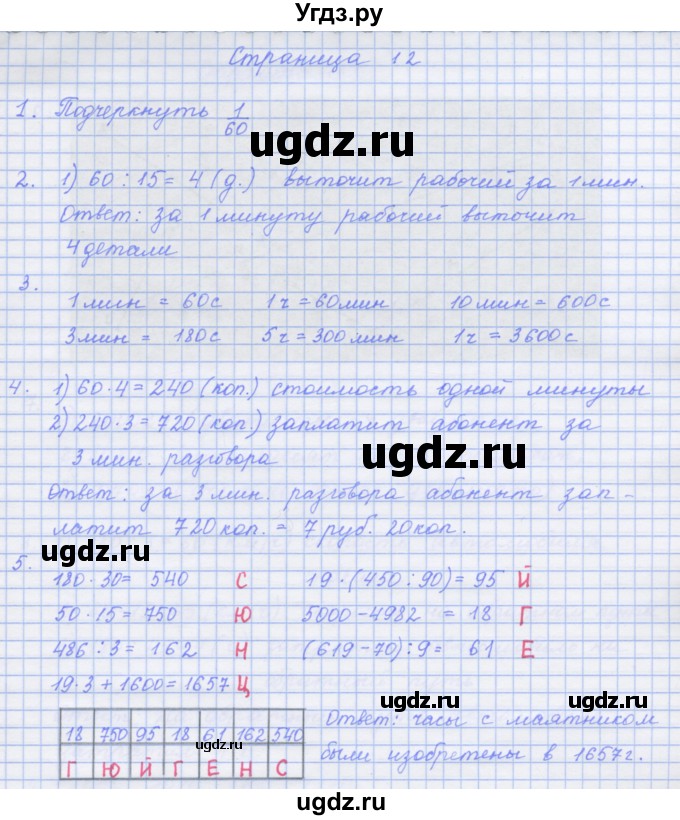 Угдз.ру
Страница 12
1. Подчеркнуть 1/60
ugdz.ru
2. 1) 60 : 15 = 4 (д.) выточит рабочий за 1 мин.
Ответ: за 1 минуту рабочий выточит
4 детали
3.
1 мин = 60 с 1 ч = 60 мин 10 мин = 600 с
3 мин = 180 с 5 ч = 300 мин 1 ч = 3600 с
4. 1) 60 · 4 = 240 (коп.) стоимость одной минуты
2) 240 · 3 = 720 (коп) заплатит абонент за
3 мин. разговора
ugdz.ru
Ответ: за 3 мин. разговора абонент зап-
латит 720 коп. = 7 руб. 20 коп.
ugdz.ru
5.
180 · 30 = 540 С 19 · (450 : 90) = 95 Й
50 · 15 = 750 Ю 5000 - 4982 = 18 Г
486 : 3 = 162 Н (619 - 70) : 9 = 61 Е
19 · 3 + 1600 = 1657 Ц
ugdz.ru ugdz.ru
18 750 95 18 61 162 540
Г Ю Й Г Е Н С
ugdz.ru
Ответ: часы с маятником
были изобретены в 1657 г.
ugdz.ru